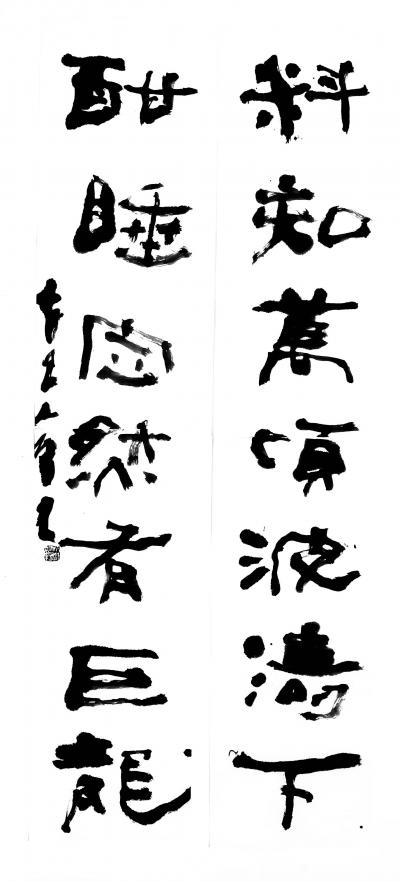 料知萬頃波濤下
酣睡定然有巨龍